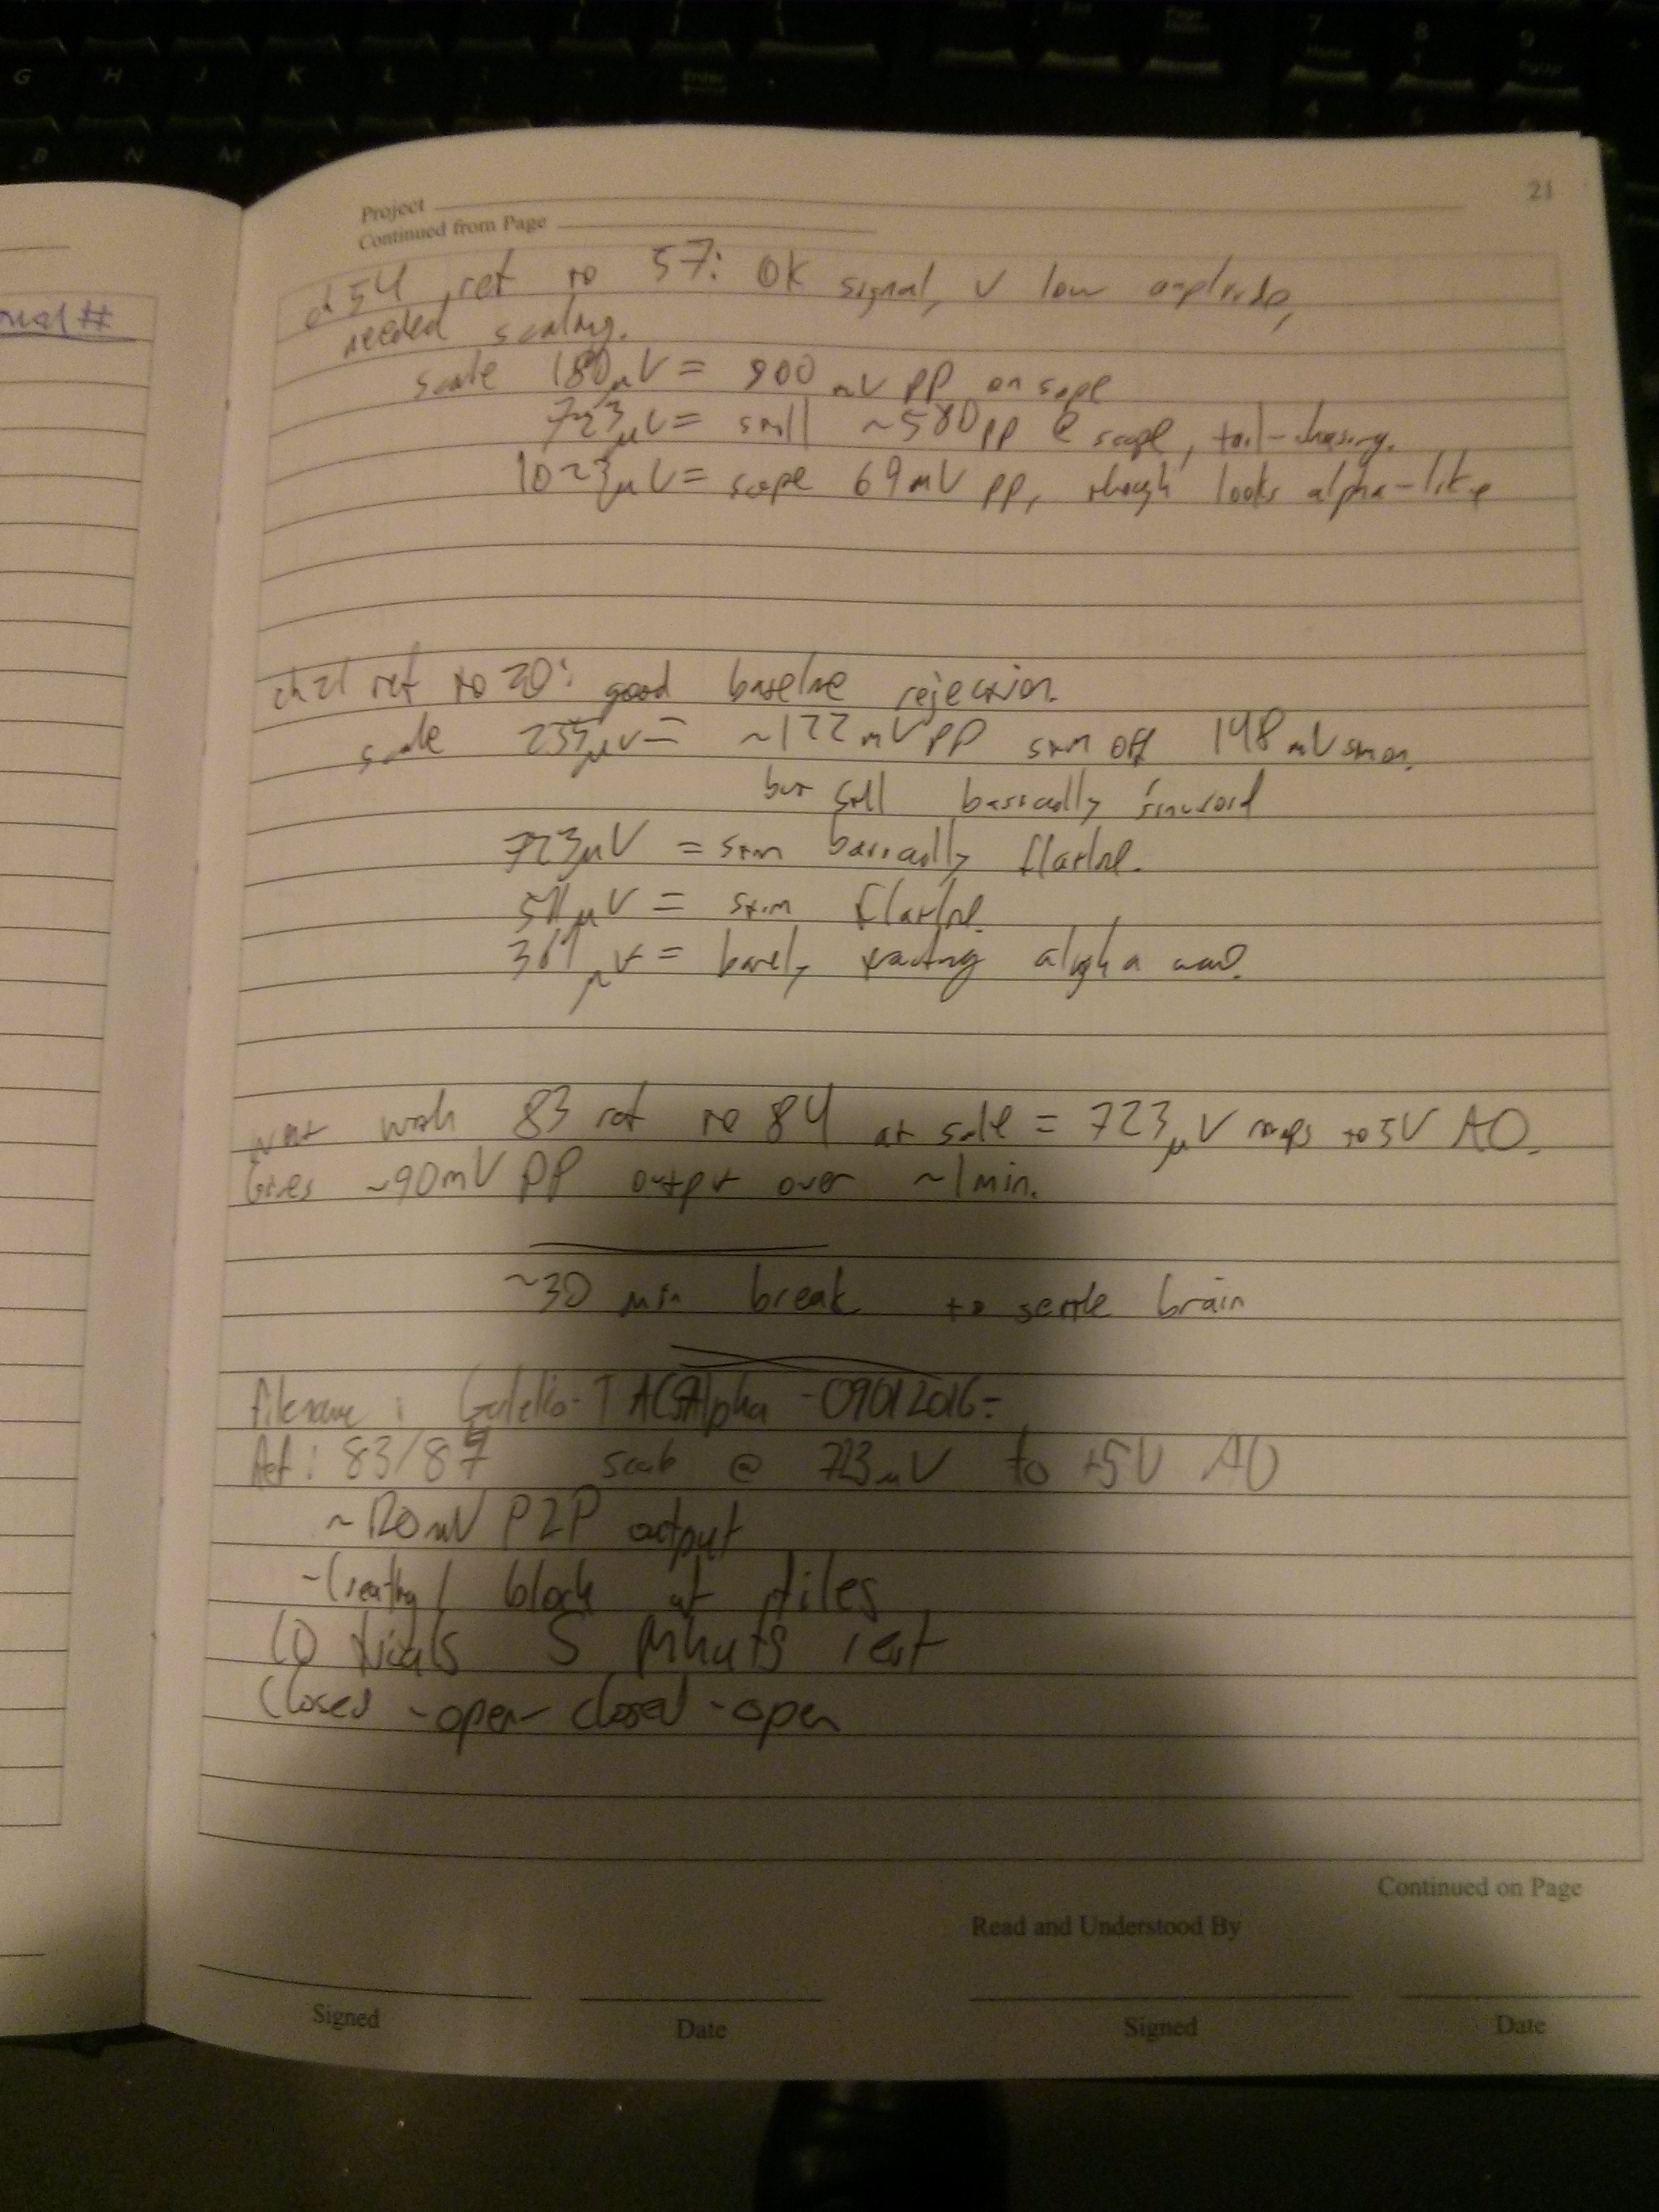 21
Project
Continued from Page
ch 54 ref to 57: OK signal, v low amplitude,
needed scaling.
scale 180μV = 900 mV PP on scope
723μV = still ~580pp @ scope, tail-chasing.
1023μV = scope 69mV pp, though looks alpha-like
ch 21 ref to 20: good baseline rejection.
scale 235μV = ~122mV PP stim off 148 mV stim on.
but still basically sinusoid
723μV = stim basically flatline.
511μV = stim flatline.
361μV = barely alpha
went with 83 ref to 84 at scale = 723μV maps to 5V AO.
Gives ~90mV PP output over ~1min.
~30 min break to settle brain
filename: TACSAlpha-09012016-
Ref: 83/ scale @ 723μV to +5V AO
~120mV P2P output
block at files
10 trials 5 minutes rest
Closed-open-closed-open
Continued on Page
Read and Understood By
Signed Date Signed Date